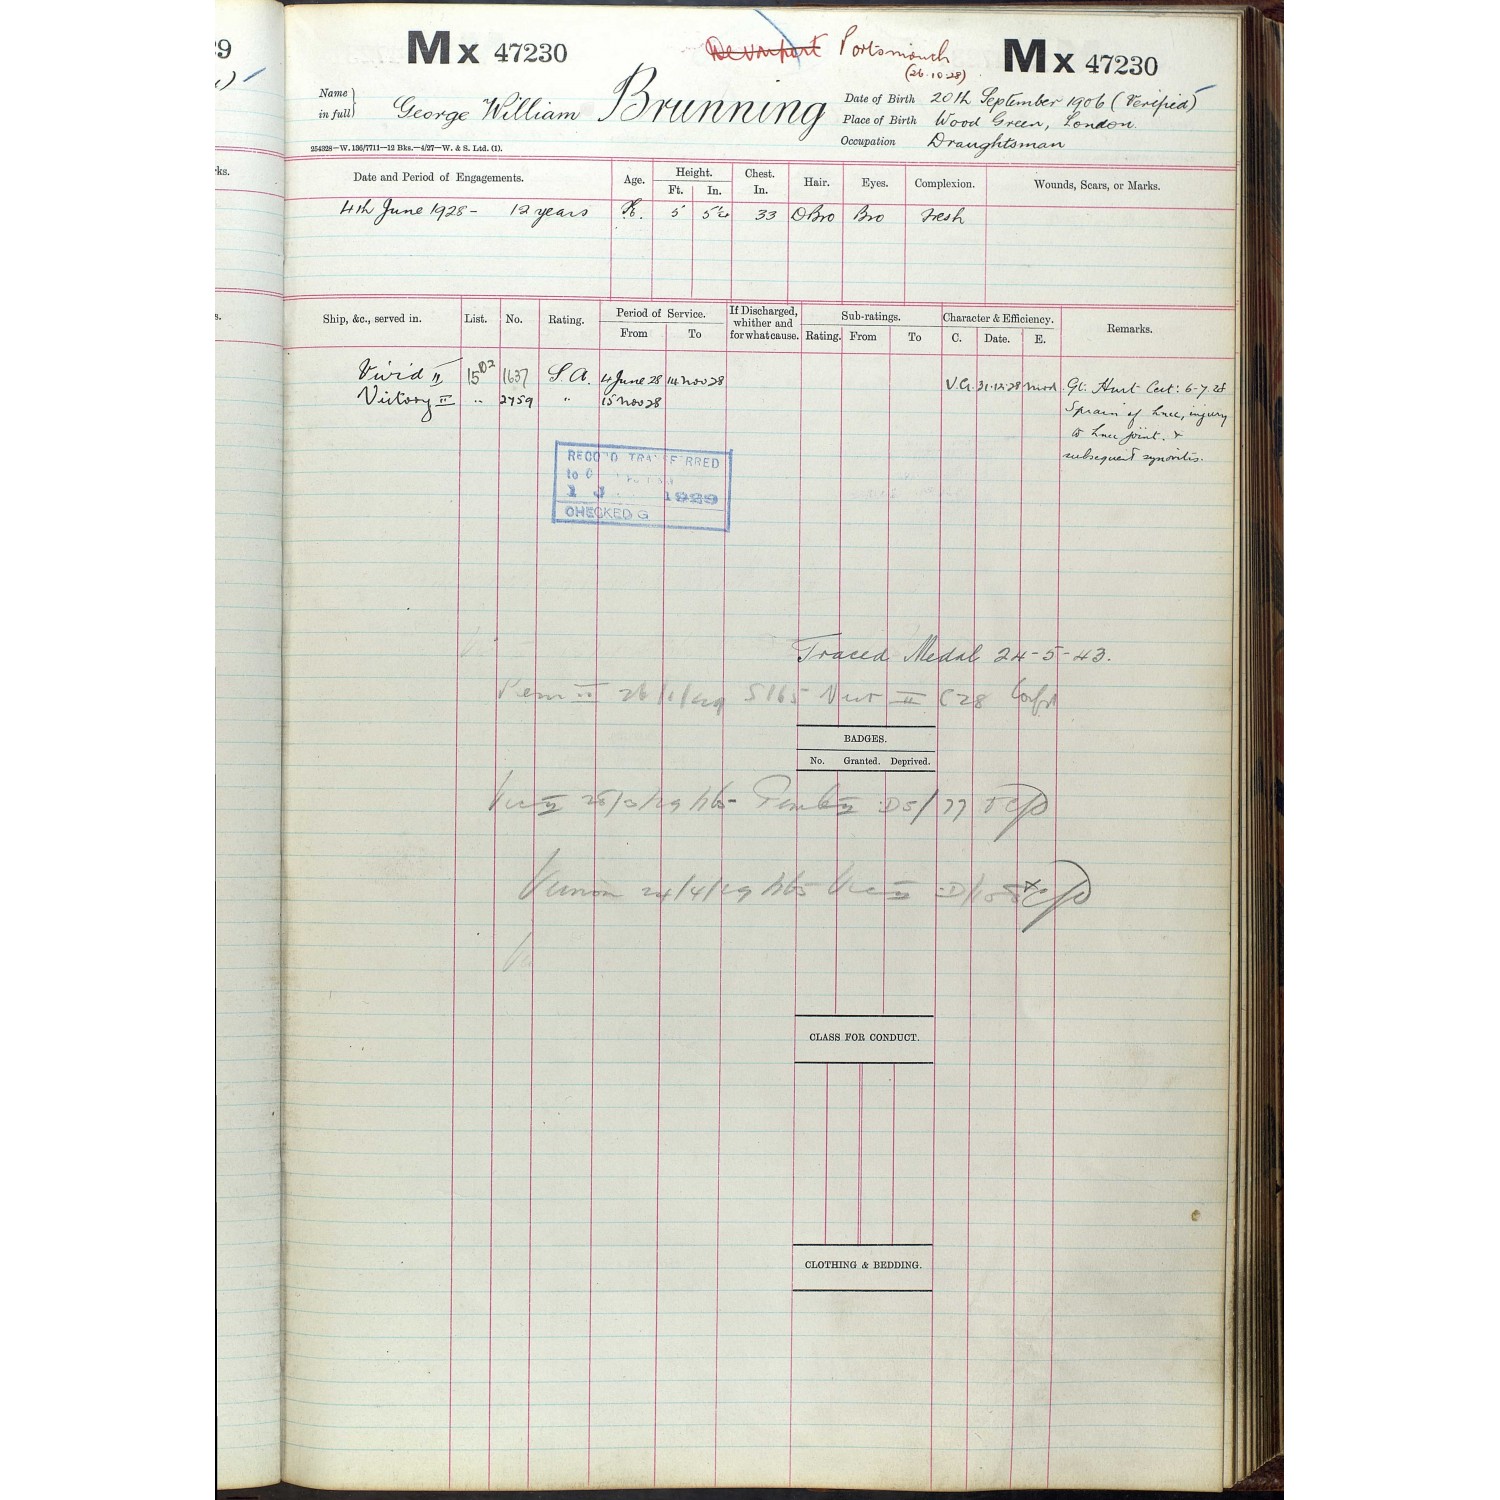 29
Mx 47230
Devonport Portsmouth
(26.10.28)
Mx 47230
Name in full
George William Brunning
Date of Birth 20th September 1906 (Verified)
Place of Birth Wood Green, London.
Occupation Draughtsman
254328—W. 136/7711—12 Bks.—4/27—W. & S. Ltd. (1).
ks.
Date and Period of Engagements. Age. Height. Ft. In. Chest. In. Hair. Eyes. Complexion. Wounds, Scars, or Marks.
4th June 1928 - 12 years 5 33 D Bro Bro Fresh
s.
Ship, &c., served in. List. No. Rating. Period of Service. From To If Discharged, whither and for what cause. Sub-ratings. Rating. From To Character & Efficiency. C. Date. E. Remarks.
Vivid II 1637 S.A. 4 June 28 14 Nov 28 V.G. 31.12.28 Mod. Gt: Hurt Cert: 6-7-28
Victory II " 2759 " 15 Nov 28 Sprain of knee, injury
to knee joint. &
subsequent synovitis.
RECORD TRANSFERRED
to
1 1929
CHECKED G
Traced Medal 24-5-43.
II 26/1/29 5165 Vict II C28
BADGES.
No. Granted. Deprived.
Vernon 24/4/29
CLASS FOR CONDUCT.
CLOTHING & BEDDING.